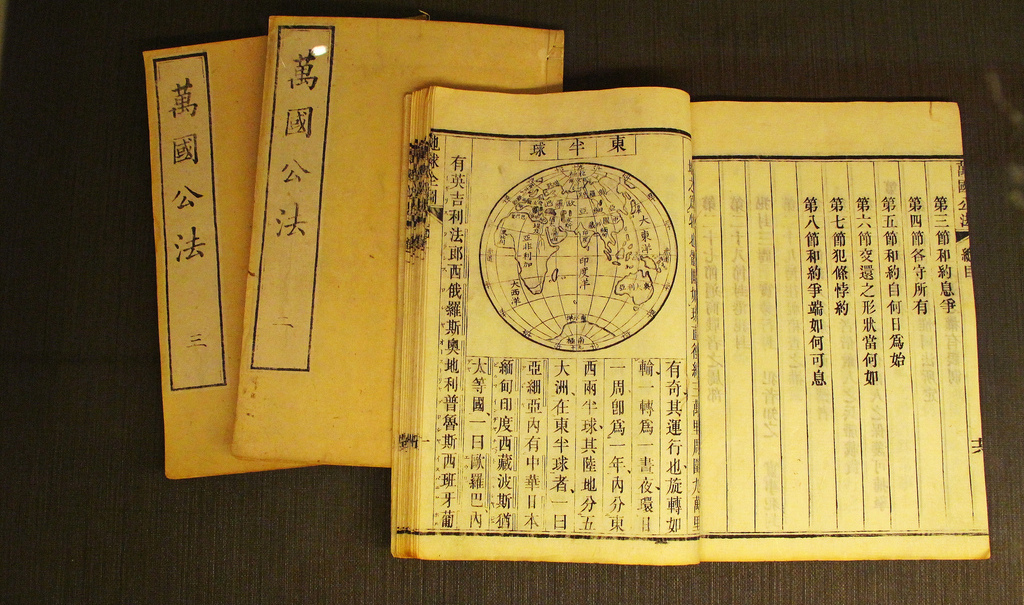 萬國公法
三
萬國公法
二
第三節和約息爭
第四節各守所有
第五節和約自何日爲始
第六節交還之形狀當何如
第七節犯條悖約
第八節和約爭端如何可息
東半球
大東洋
印度洋
亞非利加
大西洋
有奇其運行也旋轉如
輪一轉爲一晝夜環日
一周卽爲一年內分東
西兩半球其陸地分五
大洲在東半球者一曰
亞細亞內有中華日本
緬甸印度西藏波斯猶
太等國一曰歐羅巴內
有英吉利法郎西俄羅斯奧地利普魯斯西班牙葡
地球全圖